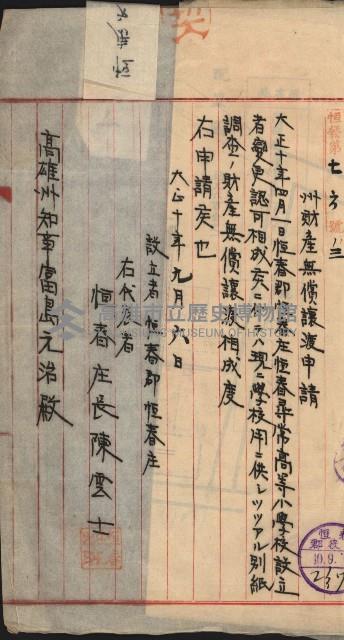 恒發第七六號ノ三
州財產無償讓渡申請
大正十年四月一日恒春郡恒春庄恒春尋常高等小學校設立
者變更認可相成候ニ付テハ現ニ學校用ニ供シツツアル別紙
調書ノ財產無償讓渡相成度
右申請候也
大正十年九月六日
設立者恒春郡恒春庄
右代表者
恒春庄長陳雲士
高雄州知事富島元治殿
高雄市立歷史博物館
KAOHSIUNG MUSEUM OF HISTORY
10.9.